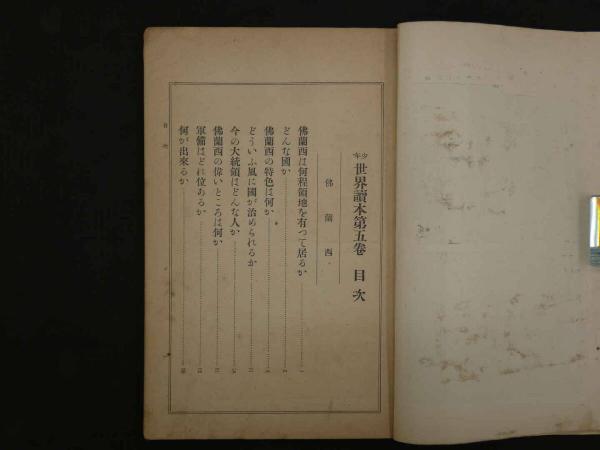 少年 世界讀本第五卷 目次
佛蘭西
佛蘭西は何程領地を有つて居るか
どんな國か
佛蘭西の特色は何か
どういふ風に國が治められるか
今の大統領はどんな人か
佛蘭西の偉いところは何か
軍備はどれ位あるか
何が出來るか
目次